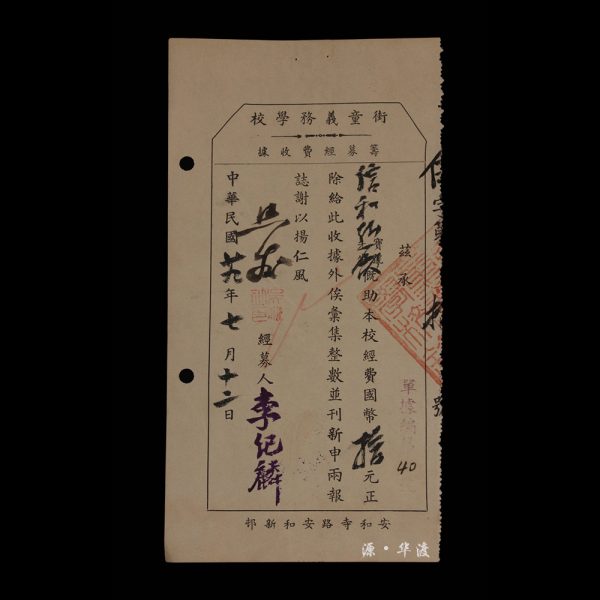 街童義務學校
籌募經費收據
茲承
信和紗廠寶號慨助本校經費國幣拾元正
除給此收據外俟彙集整數並刊新申兩報
誌謝以揚仁風
經募人李紀麟
中華民國廿九年七月十二日
安和寺路安和新邨
單據編號
40
字第
拾
號
源·华渡